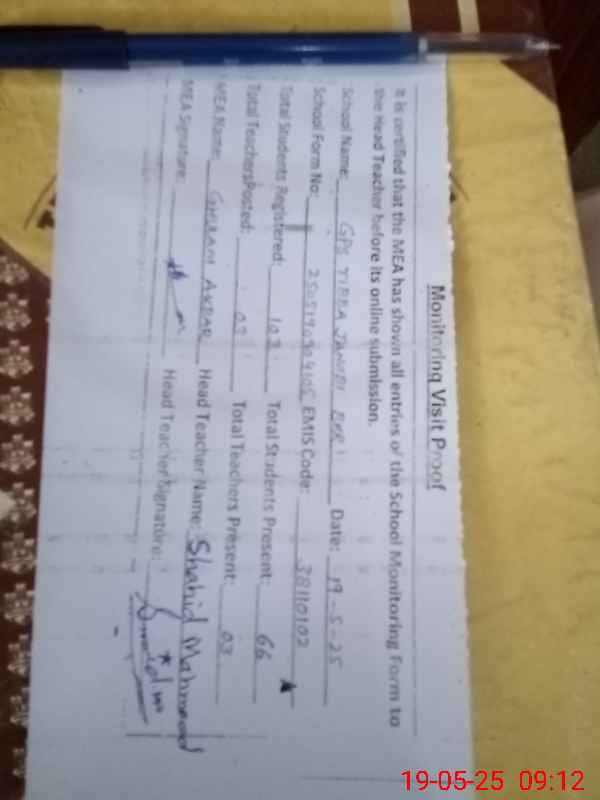 Monitoring Visit Proof
It is certified that the MEA has shown all entries of the School Monitoring Form to
the Head Teacher before its online submission.
School Name: GPS TIBBA Date: 19-5-25
School Form No: EMIS Code: 38110102
Total Students Registered: 103 Total Students Present: 66
Total TeachersPosted: 03 Total Teachers Present: 03
MEA Name: GHULAM AKBAR Head Teacher Name: Shahid Mahmood
MEA Signature: Head Teacher Signature:
19-05-25 09:12